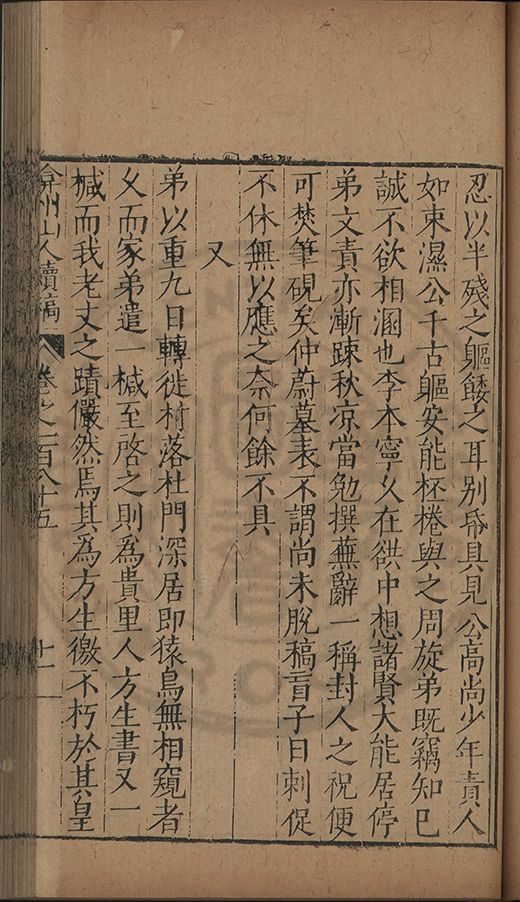 忍以半殘之軀餧之耳別帋具見公高尚少年責人
如束濕公千古軀安能杯棬與之周旋弟既竊知己
誠不欲相溷也李本寧久在洪中想諸賢大能居停
弟文責亦漸踈秋凉當勉撰蕪辭一稱封人之祝便
可焚筆硯矣仲蔚墓表不謂尚未脫稿盲子日刺促
不休無以應之奈何餘不具
又
弟以重九日轉徙村落杜門深居即猿鳥無相窺者
乂而家弟遣一椷至啓之則爲貴里人方生書又一
椷而我老丈之蹟儼然焉其爲方生徼不朽於其皇
弇州山人續稿 卷之一百八十五 十一